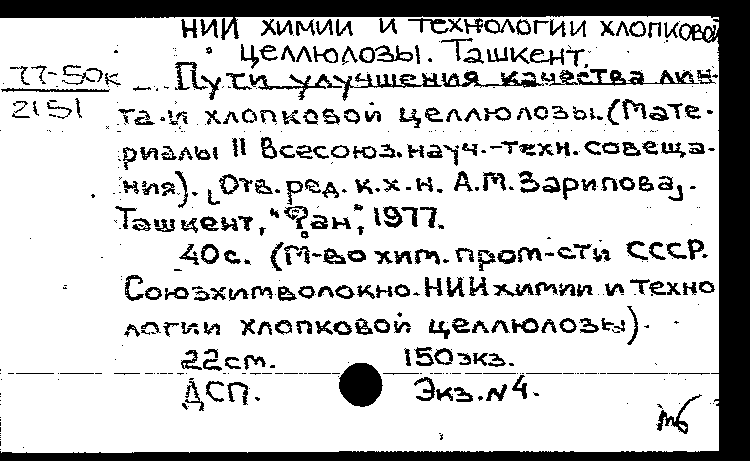 НИИ химии и технологии хлопковой
целлюлозы. Ташкент.
77-50к Пути улучшения качества лин-
2151 та и хлопковой целлюлозы. (Мате-
риалы II Всесоюз. науч.-техн. совеща-
ния). [Отв. ред. к.х.н. А.М. Зарипова].
Ташкент, "Фан", 1977.
40с. (М-во хим. пром-сти СССР.
Союзхимволокно. НИИ химии и техно
логии хлопковой целлюлозы).
22см. 150экз.
ДСП. Экз. N4.